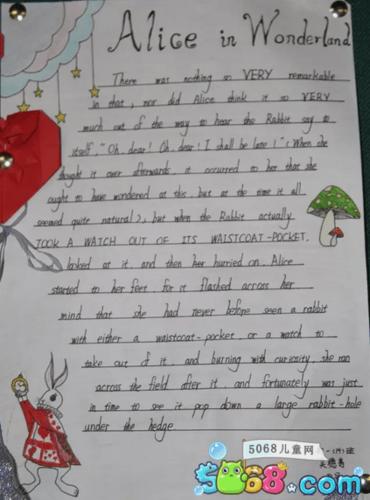 Alice in Wonderland
There was nothing so VERY remarkable
in that, nor did Alice think it so VERY
much out of the way to hear the Rabbit say to
itself, "Oh dear! Oh dear! I shall be late!" (When she
thought it over afterwards, it occurred to her that she
ought to have wondered at this, but at the time it all
seemed quite natural), but when the Rabbit actually
TOOK A WATCH OUT OF ITS WAISTCOAT-POCKET,
looked at it, and then her hurried on, Alice
started to her feet, for it flashed across her
mind that she had never before seen a rabbit
with either a waistcoat-pocket, or a watch to
take out of it, and burning with curiosity, she ran
across the field after it, and fortunately was just
in time to see it pop down a large rabbit-hole
under the hedge
5068儿童网
5068.com